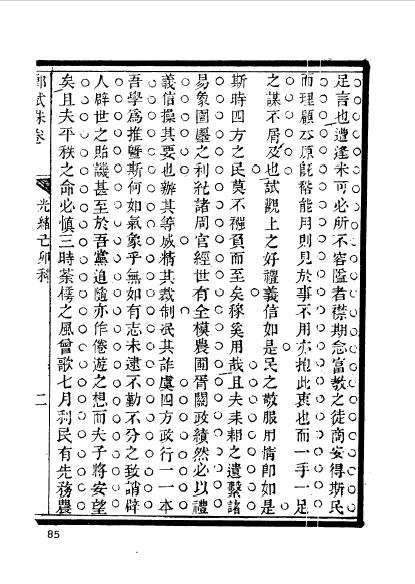 足言也遭逢未可必所不容隘者襟期念富教之徒商安得斯民
而理顧本原既裕能用則見於事不用亦抱此衷也而一手一足
之謀不屑及也試觀上之好禮義信如是民之敬服用情即如是
斯時四方之民莫不襁負而至矣稼奚用哉且夫耒耜之遺繫諸
易象圃廛之利紀諸周官經世有全模農圃胥關政績然必以禮
義信操其要也辦其等威精其裁制泯其詐虞四方政行一一本
吾學為推暨斯何如氣象乎無如有志未逮不勤不分之致誚辟
人辟世之貽譏甚至於吾黨追隨亦作倦遊之想而夫子將安望
矣且夫平秩之命必慎三時荼蓼之風曾歌七月利民有先務農
鄉試硃卷 光緒己卯科 二
85